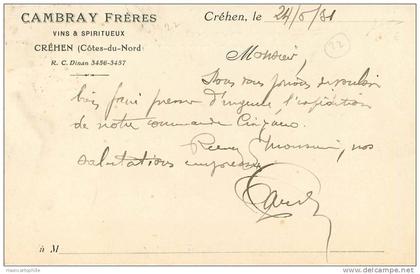 CAMBRAY FRÈRES
VINS & SPIRITUEUX
CRÉHEN (Côtes-du-Nord)
R. C. Dinan 3456-3457
Créhen, le 24/6/31
22
22
Monsieur,
Nous vous prions de vouloir
bien faire presser d'urgence l'expédition
de notre commande Cinzano.
Recevez Monsieur, nos
salutations empressées
à M
delcampe.net